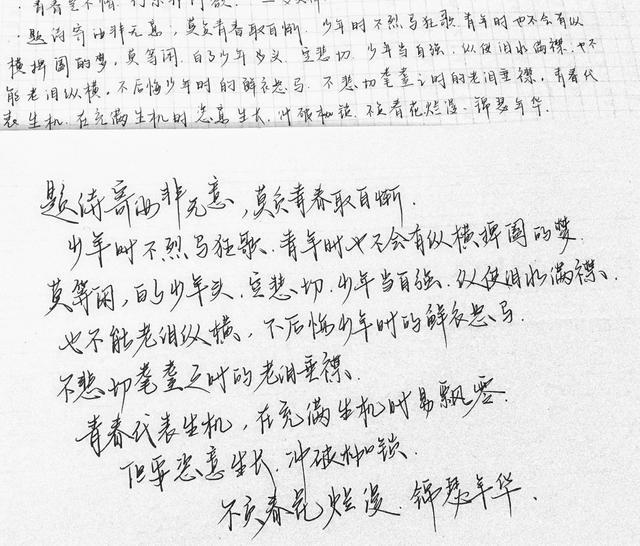 题诗寄汝非无意，莫负青春取自惭．少年时不烈马狂歌．青年时也不会有纵
横捭阖的梦，莫等闲．白了少年头．空悲切．少年当自强．纵使泪水满襟．也不
能老泪纵横．不后悔少年时的鲜衣怒马．不悲切耄耋之时的老泪垂襟．青春代
表生机．在充满生机时恣意生长．冲破枷锁．不负春花烂漫．锦瑟年华．
题诗寄汝非无意，莫负青春取自惭．
少年时不烈马狂歌．青年时也不会有纵横捭阖的梦
莫等闲，白了少年头．空悲切．少年当自强．纵使泪水满襟．
也不能老泪纵横．不后悔少年时的鲜衣怒马．
不悲切耄耋之时的老泪垂襟．
青春代表生机，在充满生机时易飘零．
但要恣意生长．冲破枷锁．
不负春花烂漫．锦瑟年华．